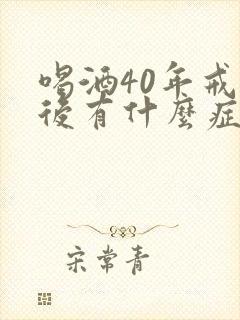 喝酒40年戒
後有什麼症
宋常青